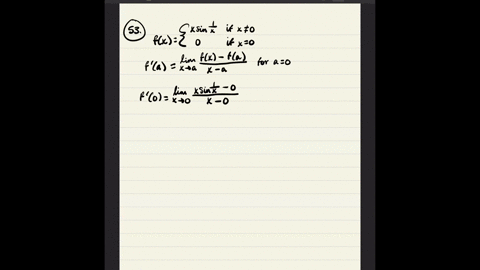 53.
f(x) = { x sin 1/x if x ≠ 0
0 if x = 0
f'(a) = lim x→a f(x) - f(a) / x - a for a = 0
f'(0) = lim x→0 x sin 1/x - 0 / x - 0